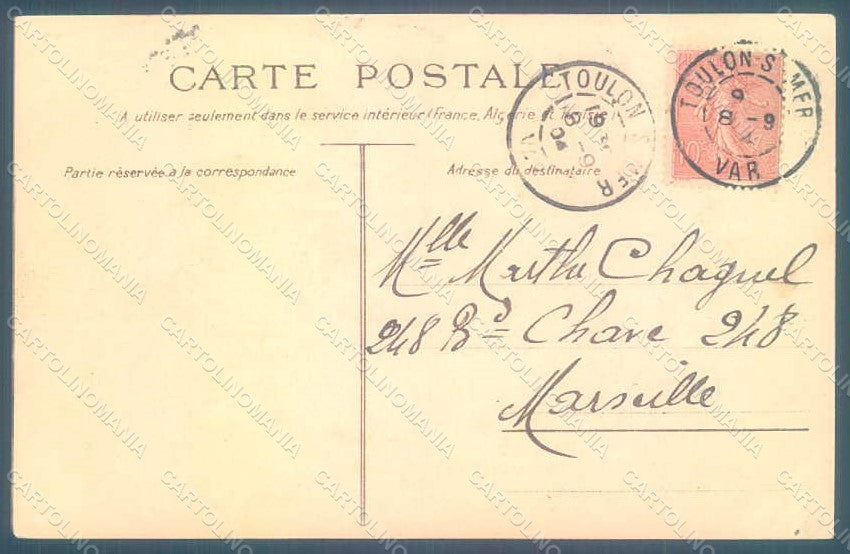 CARTE POSTALE
A utiliser seulement dans le service intérieur (France, Algérie et
Partie réservée à la correspondance
Adresse du destinataire
TOULON S MER
18 -9
VAR
TOULON S MER
18 -9
04
VAR
10
Mlle Marthe Chaquel
248 Bd Chave 248
Marseille
CARTOLINOMANIA